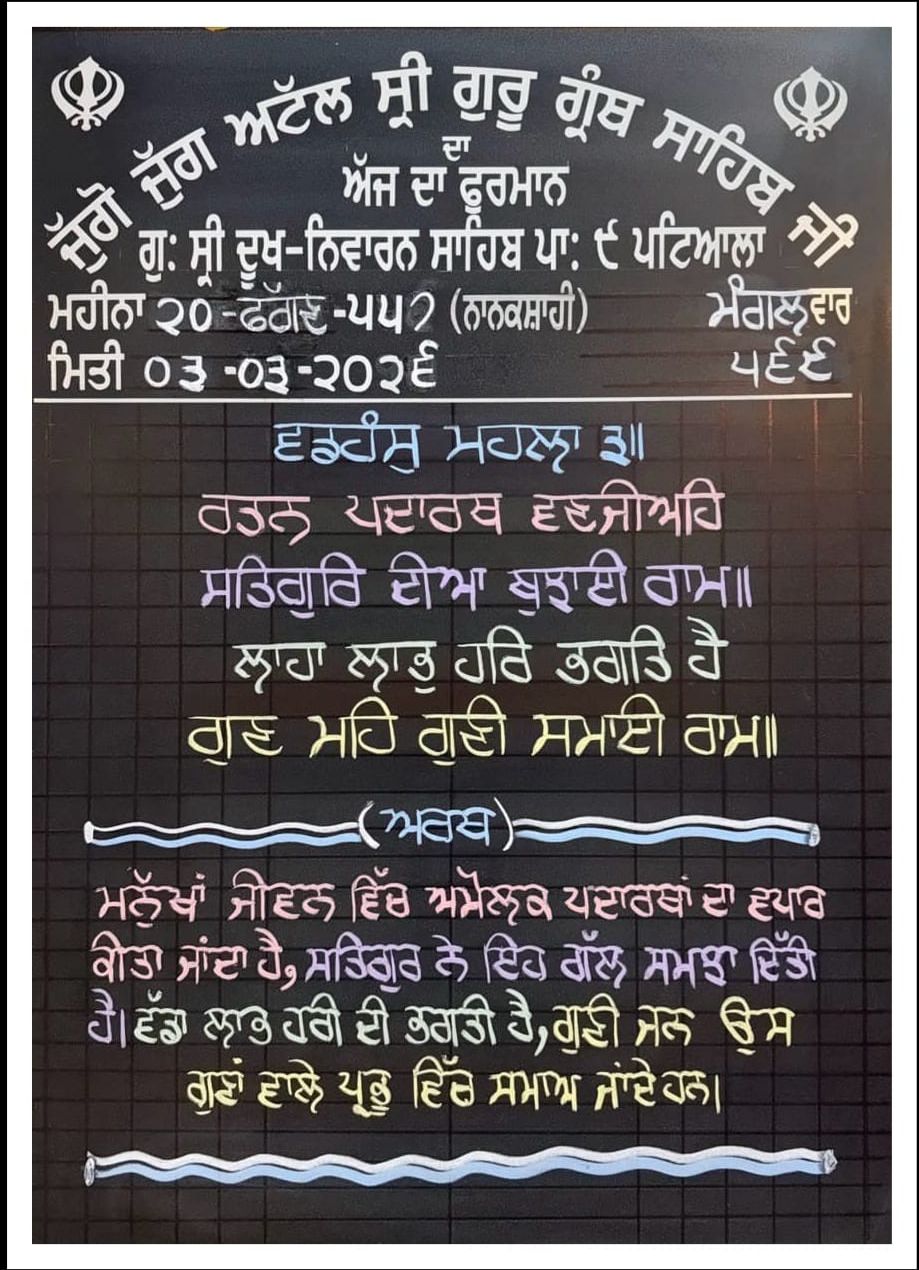 ਜੁੱਗੋ ਜੁੱਗ ਅਟੱਲ ਸ੍ਰੀ ਗੁਰੂ ਗ੍ਰੰਥ ਸਾਹਿਬ ਜੀ
ਦਾ
ਅੱਜ ਦਾ ਫੂਰਮਾਨ
ਗੁ: ਸ੍ਰੀ ਦੂਖ-ਨਿਵਾਰਨ ਸਾਹਿਬ ਪਾ: ੯ ਪਟਿਆਲਾ
ਮਹੀਨਾ ੨੦-ਫੱਗਣ-੫੫੭ (ਨਾਨਕਸ਼ਾਹੀ) ਮੰਗਲਵਾਰ
ਮਿਤੀ ੦੩-੦੩-੨੦੨੬ ੫੬੬
ਵਡਹੰਸੁ ਮਹਲਾ ੩॥
ਰਤਨ ਪਦਾਰਥ ਵਣਜੀਅਹਿ
ਸਤਿਗੁਰਿ ਦੀਆ ਬੁਝਾਈ ਰਾਮ॥
ਲਾਹਾ ਲਾਭੁ ਹਰਿ ਭਗਤਿ ਹੈ
ਗੁਣ ਮਹਿ ਗੁਣੀ ਸਮਾਈ ਰਾਮ॥
(ਅਰਥ)
ਮਨੁੱਖਾਂ ਜੀਵਨ ਵਿੱਚ ਅਮੋਲਕ ਪਦਾਰਥਾਂ ਦਾ ਵਪਾਰ
ਕੀਤਾ ਜਾਂਦਾ ਹੈ, ਸਤਿਗੁਰ ਨੇ ਇਹ ਗੱਲ ਸਮਝਾ ਦਿੱਤੀ
ਹੈ। ਵੱਡਾ ਲਾਭ ਹਰੀ ਦੀ ਭਗਤੀ ਹੈ, ਗੁਣੀ ਜਨ ਉਸ
ਗੁਣਾਂ ਵਾਲੇ ਪ੍ਰਭੂ ਵਿੱਚ ਸਮਾਅ ਜਾਂਦੇ ਹਨ।